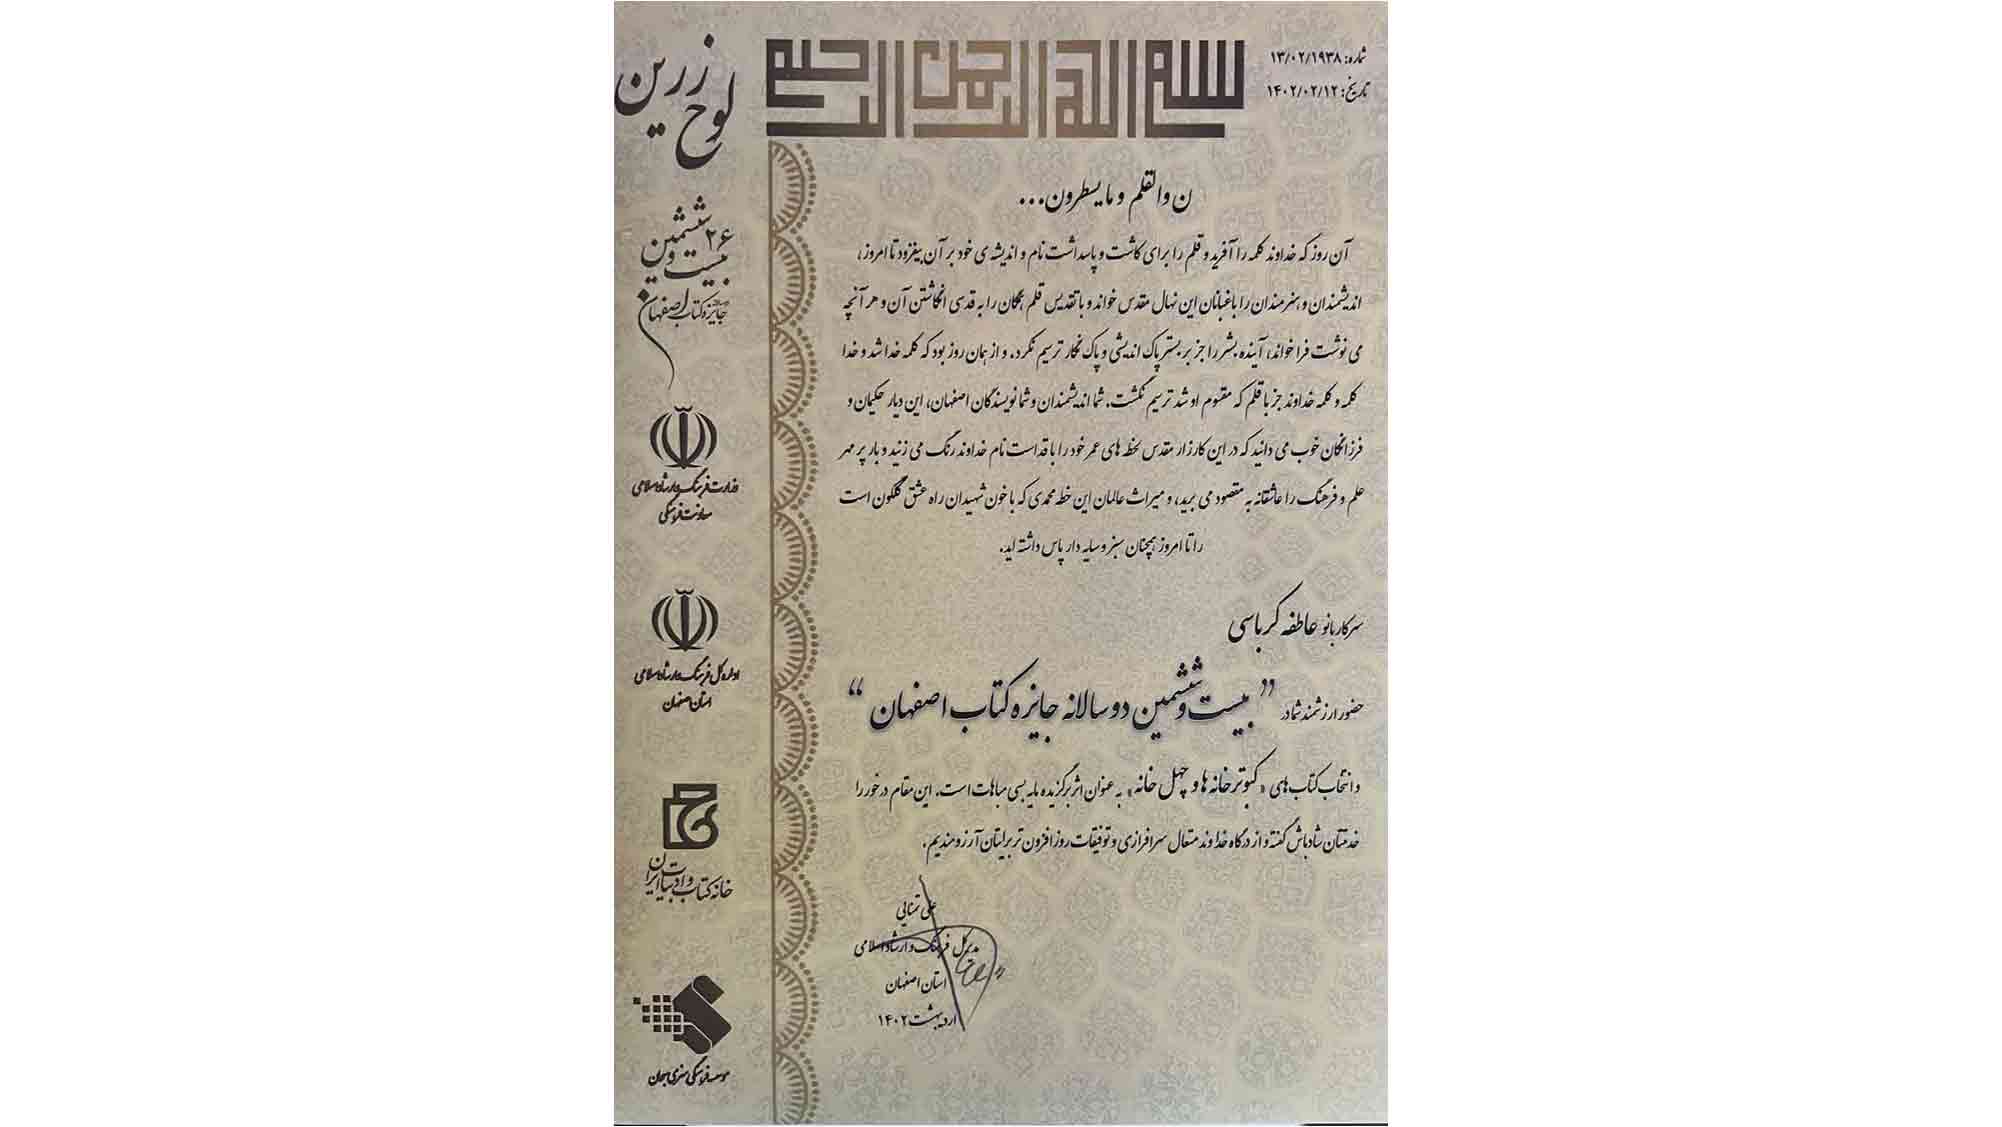 بسم الله الرحمن الرحیم
شماره: ۱۳/۰۲/۱۹۳۸
تاریخ: ۱۴۰۲/۰۲/۱۲
ن والقلم و ما یسطرون...
آن روز که خداوند کلمه را آفرید و قلم را برای کاشت و پاسداشت نام و اندیشه ی خود بر آن بیفزود تا امروز،
اندیشمندان و هنرمندان را باغبانان این نهال مقدس خواند و با تقدیس قلم همگان را به قدسی انگاشتن آن و هر آنچه
می نوشت فرا خواند، آینده بشر را جز بر بستر پاک اندیشی و پاک نگار ترسیم نکرد. و از همان روز بود که کلمه خدا شد و خدا
کلمه و کلمه خداوند جز با قلم که مقسوم او شد ترسیم نگشت. شما اندیشمندان و شما نویسندگان اصفهان، این دیار حکیمان و
فرزانگان خوب می دانید که در این کارزار مقدس لحظه های عمر خود را با قداست نام خداوند رنگ می زنید و بار پر مهر
علم و فرهنگ را عاشقانه به مقصود می برید، و میراث عالمان این خطه محمدی که با خون شهیدان راه عشق گلگون است
را تا امروز همچنان سبز و سایه دار پاس داشته اید.
سرکار بانو عاطفه کرباسی
حضور ارزشمند شما در " بیست و ششمین دوسالانه جایزه کتاب اصفهان "
و انتخاب کتاب های «کبوترخانه ها و چهل خانه» به عنوان اثر برگزیده مایه بسی مباهات است. این مقام درخور را
خدمتتان شادباش گفته و از درگاه خداوند متعال سرافرازی و توفیقات روزافزون تر برایتان آرزومندیم.
علی
مدیرکل فرهنگ و ارشاد اسلامی
استان اصفهان
اردیبهشت ۱۴۰۲
لوح زرین
۲۶
بیست و ششمین
جایزه کتاب اصفهان
وزارت فرهنگ و ارشاد اسلامی
معاونت فرهنگی
اداره کل فرهنگ و ارشاد اسلامی
استان اصفهان
خانه کتاب و ادبیات ایران
موسسه فرهنگی هنری